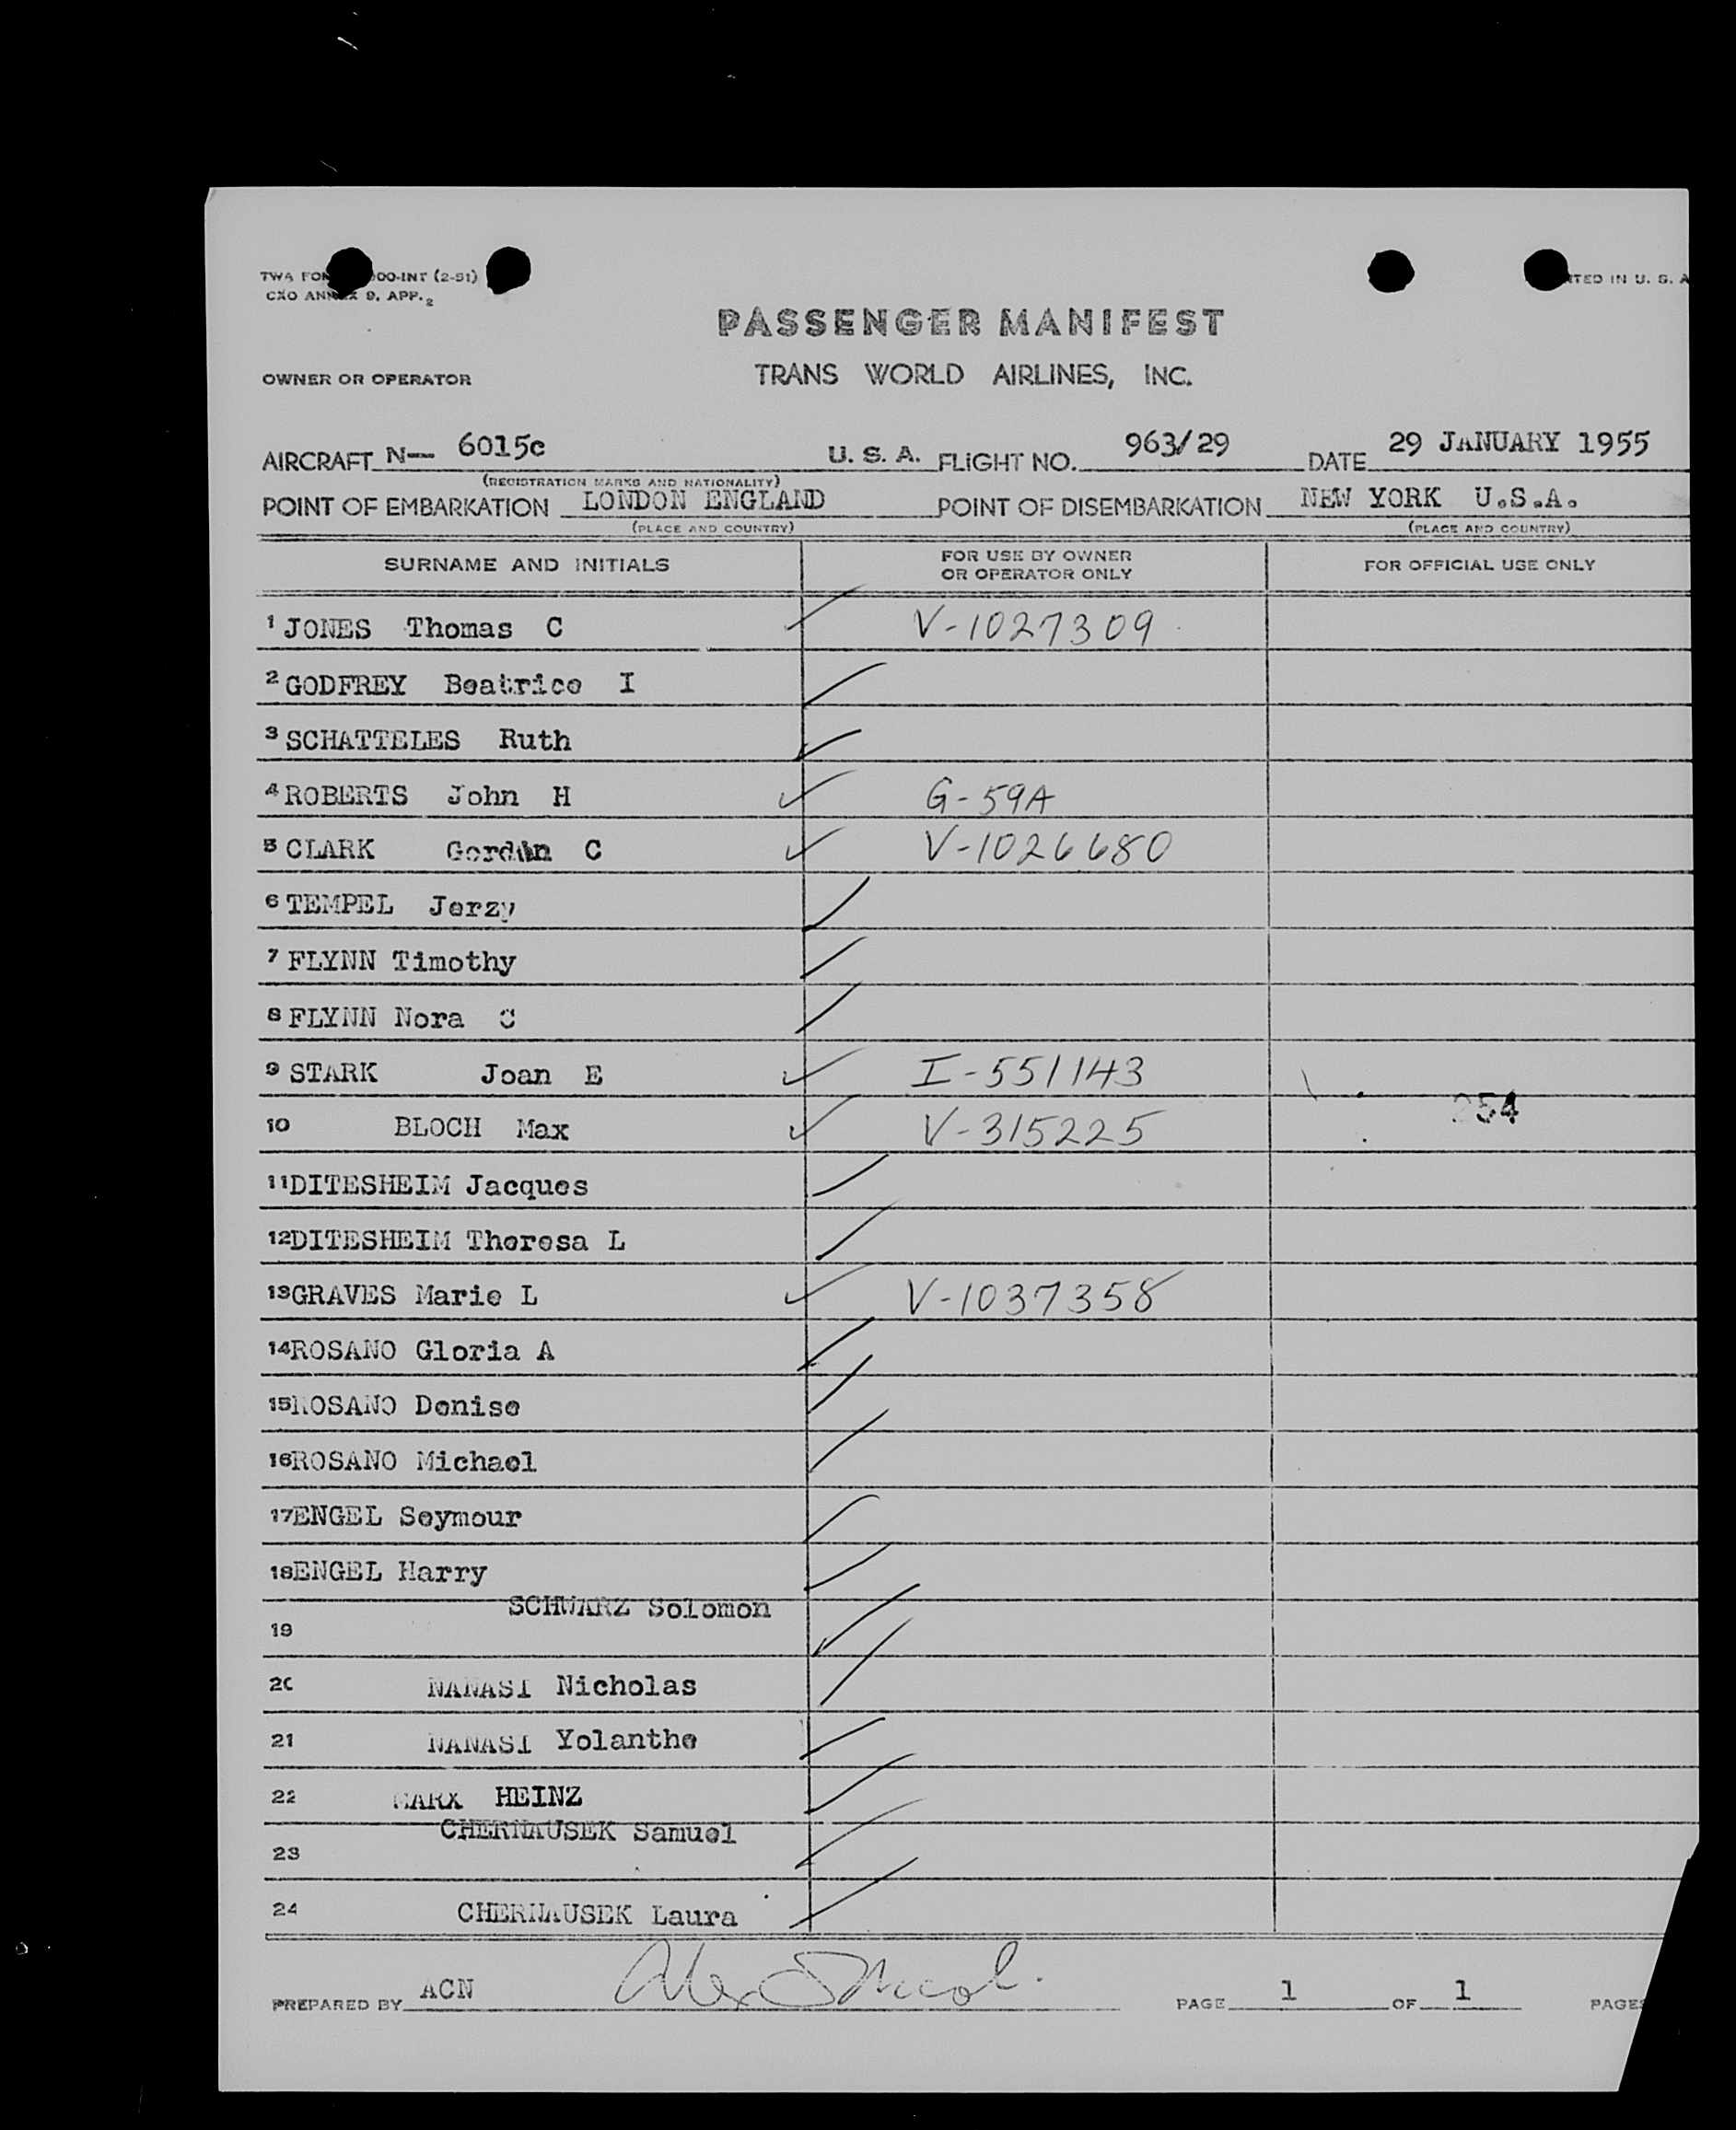 TWA FO 00-INT (2-51)
ANNEX 9, APP. 2
TED IN U. S. A
PASSENGER MANIFEST
OWNER OR OPERATOR TRANS WORLD AIRLINES, INC.
AIRCRAFT N-- 6015c U. S. A. FLIGHT NO. 963/29 DATE 29 JANUARY 1955
(REGISTRATION MARKS AND NATIONALITY)
POINT OF EMBARKATION LONDON ENGLAND POINT OF DISEMBARKATION NEW YORK U.S.A.
(PLACE AND COUNTRY) (PLACE AND COUNTRY)
SURNAME AND INITIALS FOR USE BY OWNER OR OPERATOR ONLY FOR OFFICIAL USE ONLY
1 JONES Thomas C V-1027309
2 GODFREY Beatrice I
3 SCHATTELES Ruth
4 ROBERTS John H G-59A
5 CLARK Gordon C V-1026680
6 TEMPEL Jerzy
7 FLYNN Timothy
8 FLYNN Nora C
9 STARK Joan E I-551143
254
10 BLOCH Max V-315225
11 DITESHEIM Jacques
12 DITESHEIM Theresa L
13 GRAVES Marie L V-1037358
14 ROSANO Gloria A
15 ROSANO Denise
16 ROSANO Michael
17 ENGEL Seymour
18 ENGEL Harry
19 SCHWARZ Solomon
20 NANASI Nicholas
21 NANASI Yolanthe
22 MARX HEINZ
23 CHERNAUSEK Samuel
24 CHERNAUSEK Laura
PREPARED BY ACN PAGE 1 OF 1 PAGES